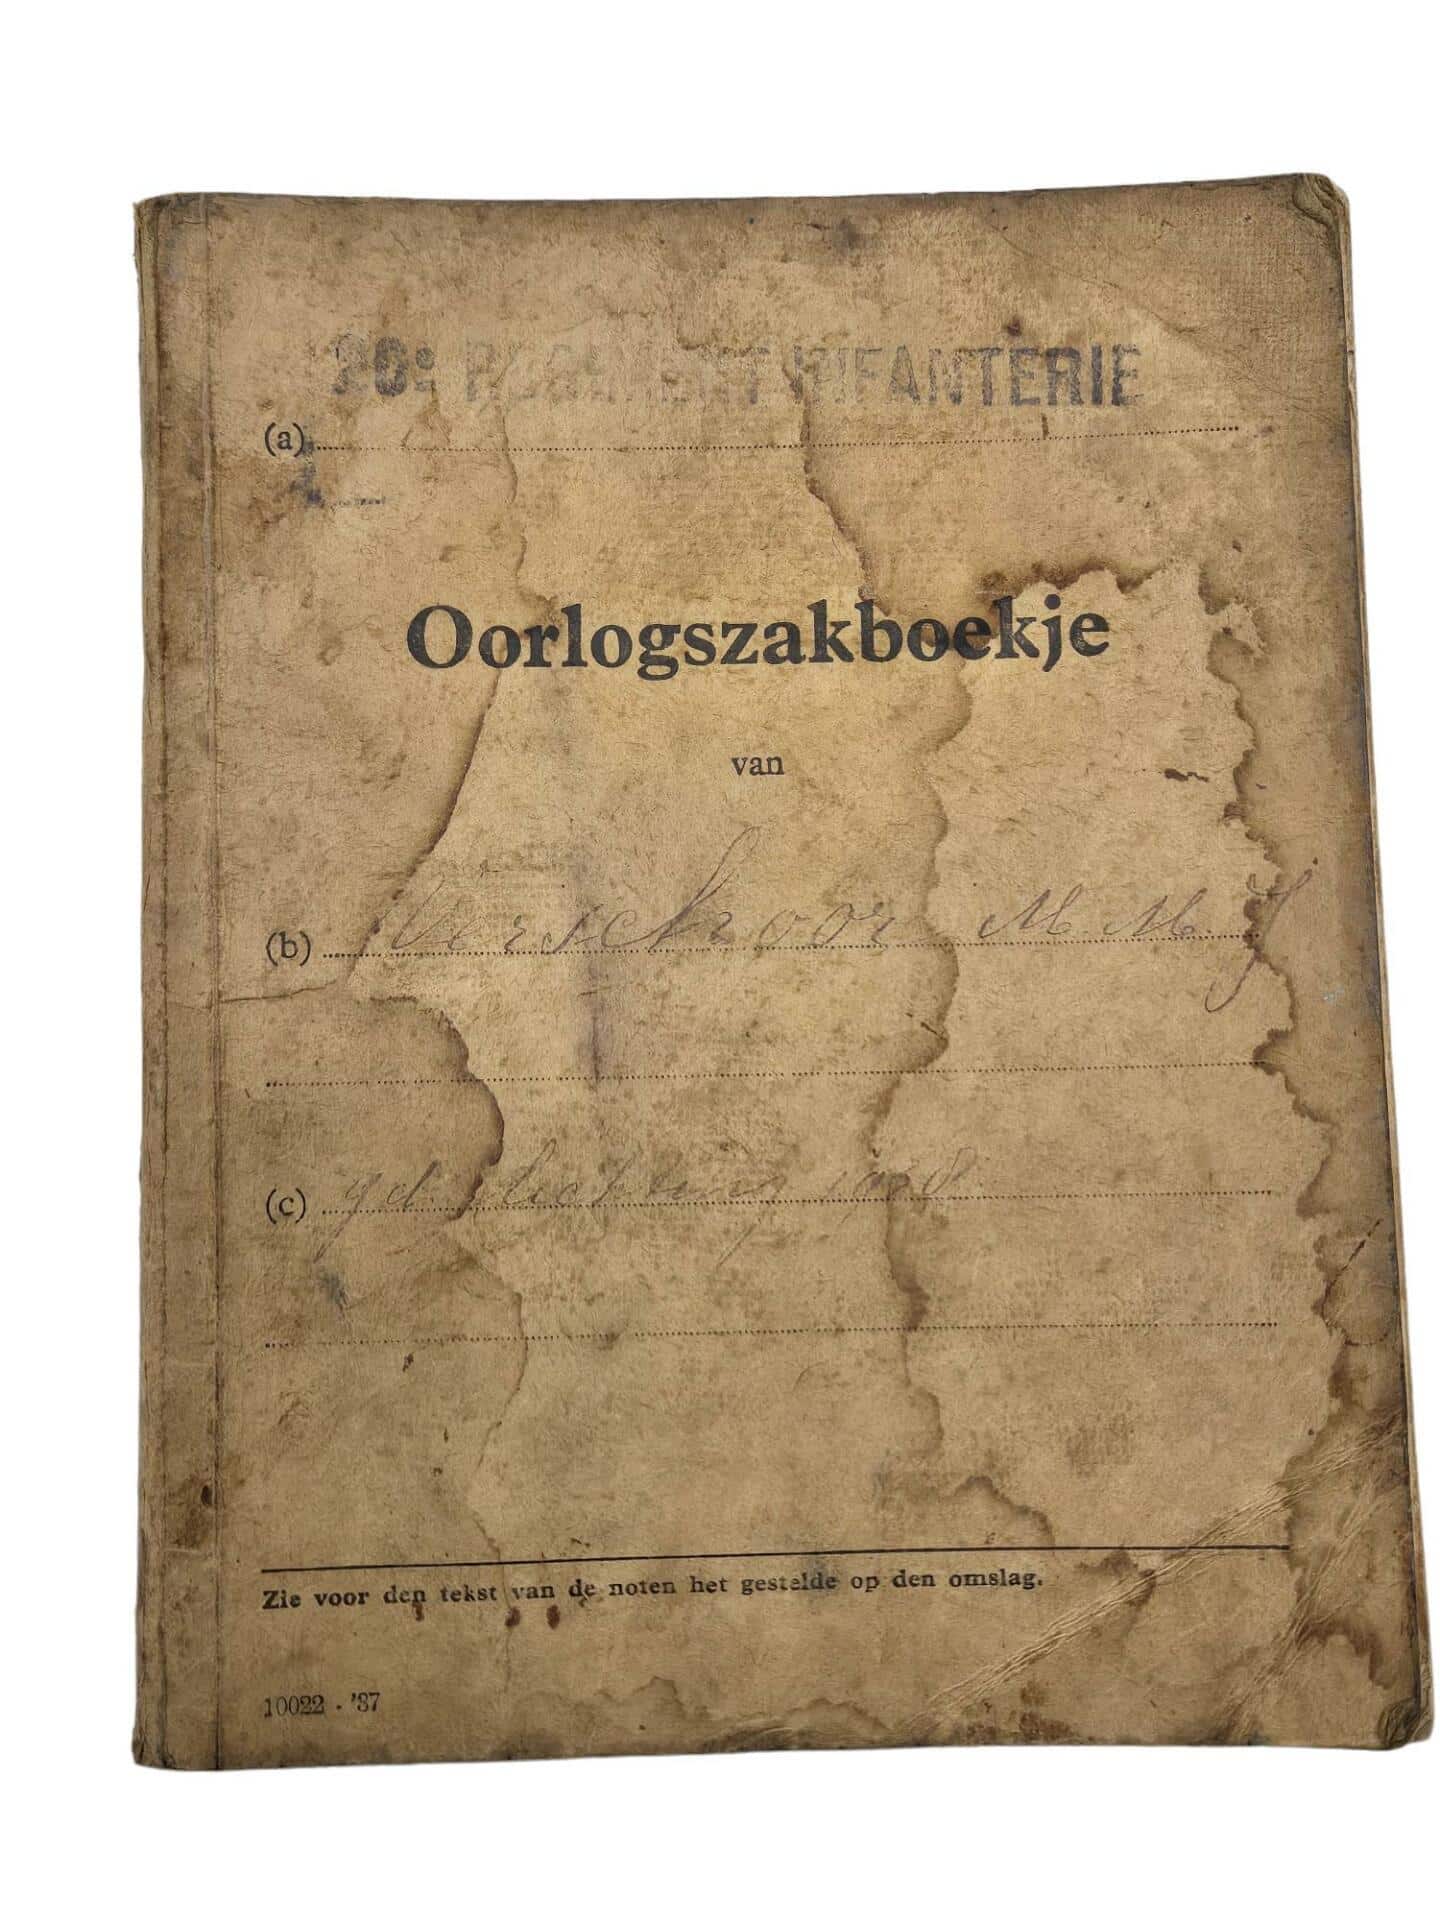 20e REGIMENT INFANTERIE
(a)
Oorlogszakboekje
van
(b) Verschoor M. M. J
(c) gd. lichting 1938
Zie voor den tekst van de noten het gestelde op den omslag.
10022 - '37